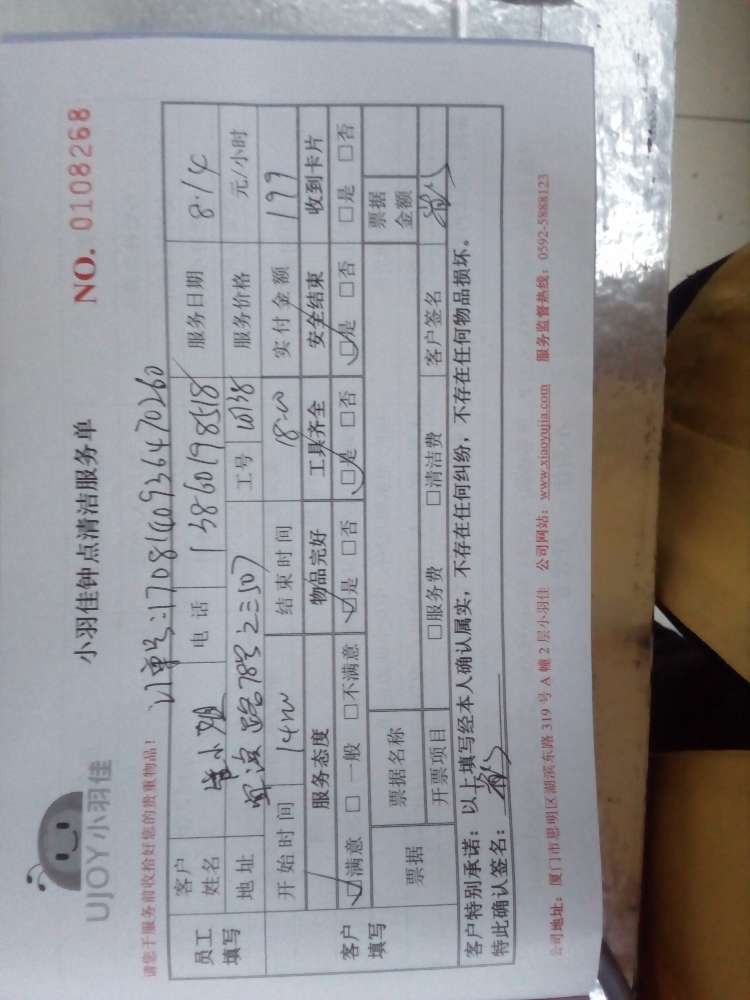 UJOY小羽佳
小羽佳钟点清洁服务单
NO. 0108268
请您于服务前收拾好您的贵重物品!
订单号:1708140936470260
员工填写 客户姓名 小姐 电话 13860198518 服务日期 8.14
地址 路78号之二507 工号 服务价格 元/小时
开始时间 结束时间 实付金额 199
客户填写 服务态度 物品完好 工具齐全 安全结束 收到卡片
☑满意 □一般 □不满意 ☑是 □否 ☑是 □否 ☑是 □否 □是 □否
票据 票据名称 票据金额
开票项目 □服务费 □清洁费 客户签名
客户特别承诺:以上填写经本人确认属实,不存在任何纠纷,不存在任何物品损坏。
特此确认签名:
公司地址:厦门市思明区湖滨东路 319 号 A 幢 2 层小羽佳 公司网站:www.xiaoyujia.com 服务监督热线:0592-5888123